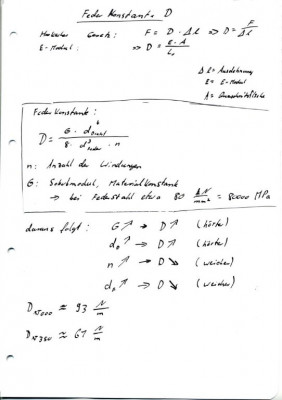 Feder Konstante D
Hooksches Gesetz: F = D · Δl => D = F / Δl
E-Modul: => D = E·A / L₀
Δl = Ausdehnung
E = E-Modul
A = Querschnittsfläche
Federkonstante:
D = G · d⁴ / 8 · d³ · n
n: Anzahl der Windungen
G: Schubmodul, Materialkonstante
=> bei Federstahl etwa 80 kN/mm² = 80000 MPa
daraus folgt: G↗ → D↗ (härter)
↗ → D↗ (härter)
n↗ → D↘ (weicher)
↗ → D↘ (weicher)
≈ 93 N/m
≈ 61 N/m